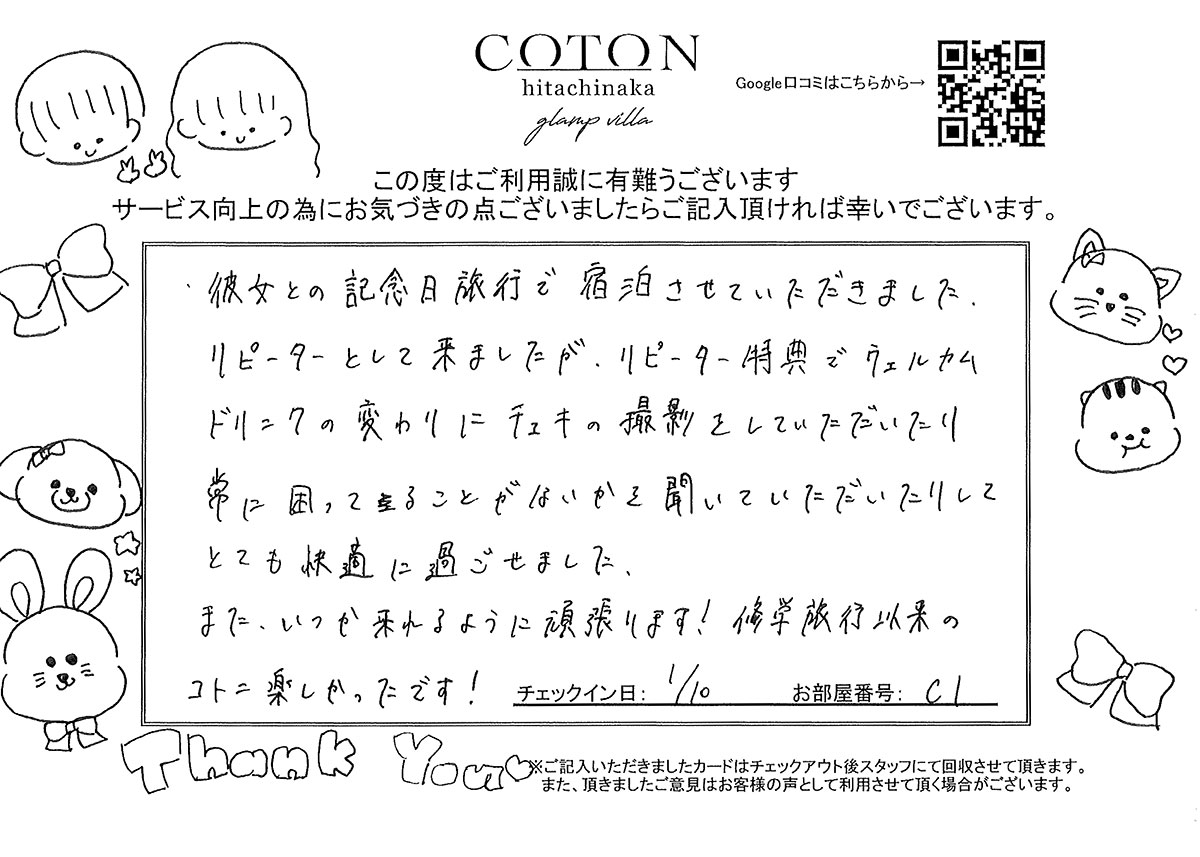 COTON
hitachinaka
glamp villa
Google口コミはこちらから→
この度はご利用誠に有難うございます
サービス向上の為にお気づきの点ございましたらご記入頂ければ幸いでございます。
・彼女との記念日旅行で宿泊させていただきました、
リピーターとして来ましたが、リピーター特典でウェルカム
ドリンクの変わりにチェキの撮影をしていただいたり
常に困って居ることがないかを聞いていただいたりして
とても快適に過ごせました、
また、いつか来れるように頑張ります!修学旅行以来の
コトニ楽しかったです!
チェックイン日: 1/10 お部屋番号: C1
Thank You
※ご記入いただきましたカードはチェックアウト後スタッフにて回収させて頂きます。
また、頂きましたご意見はお客様の声として利用させて頂く場合がございます。